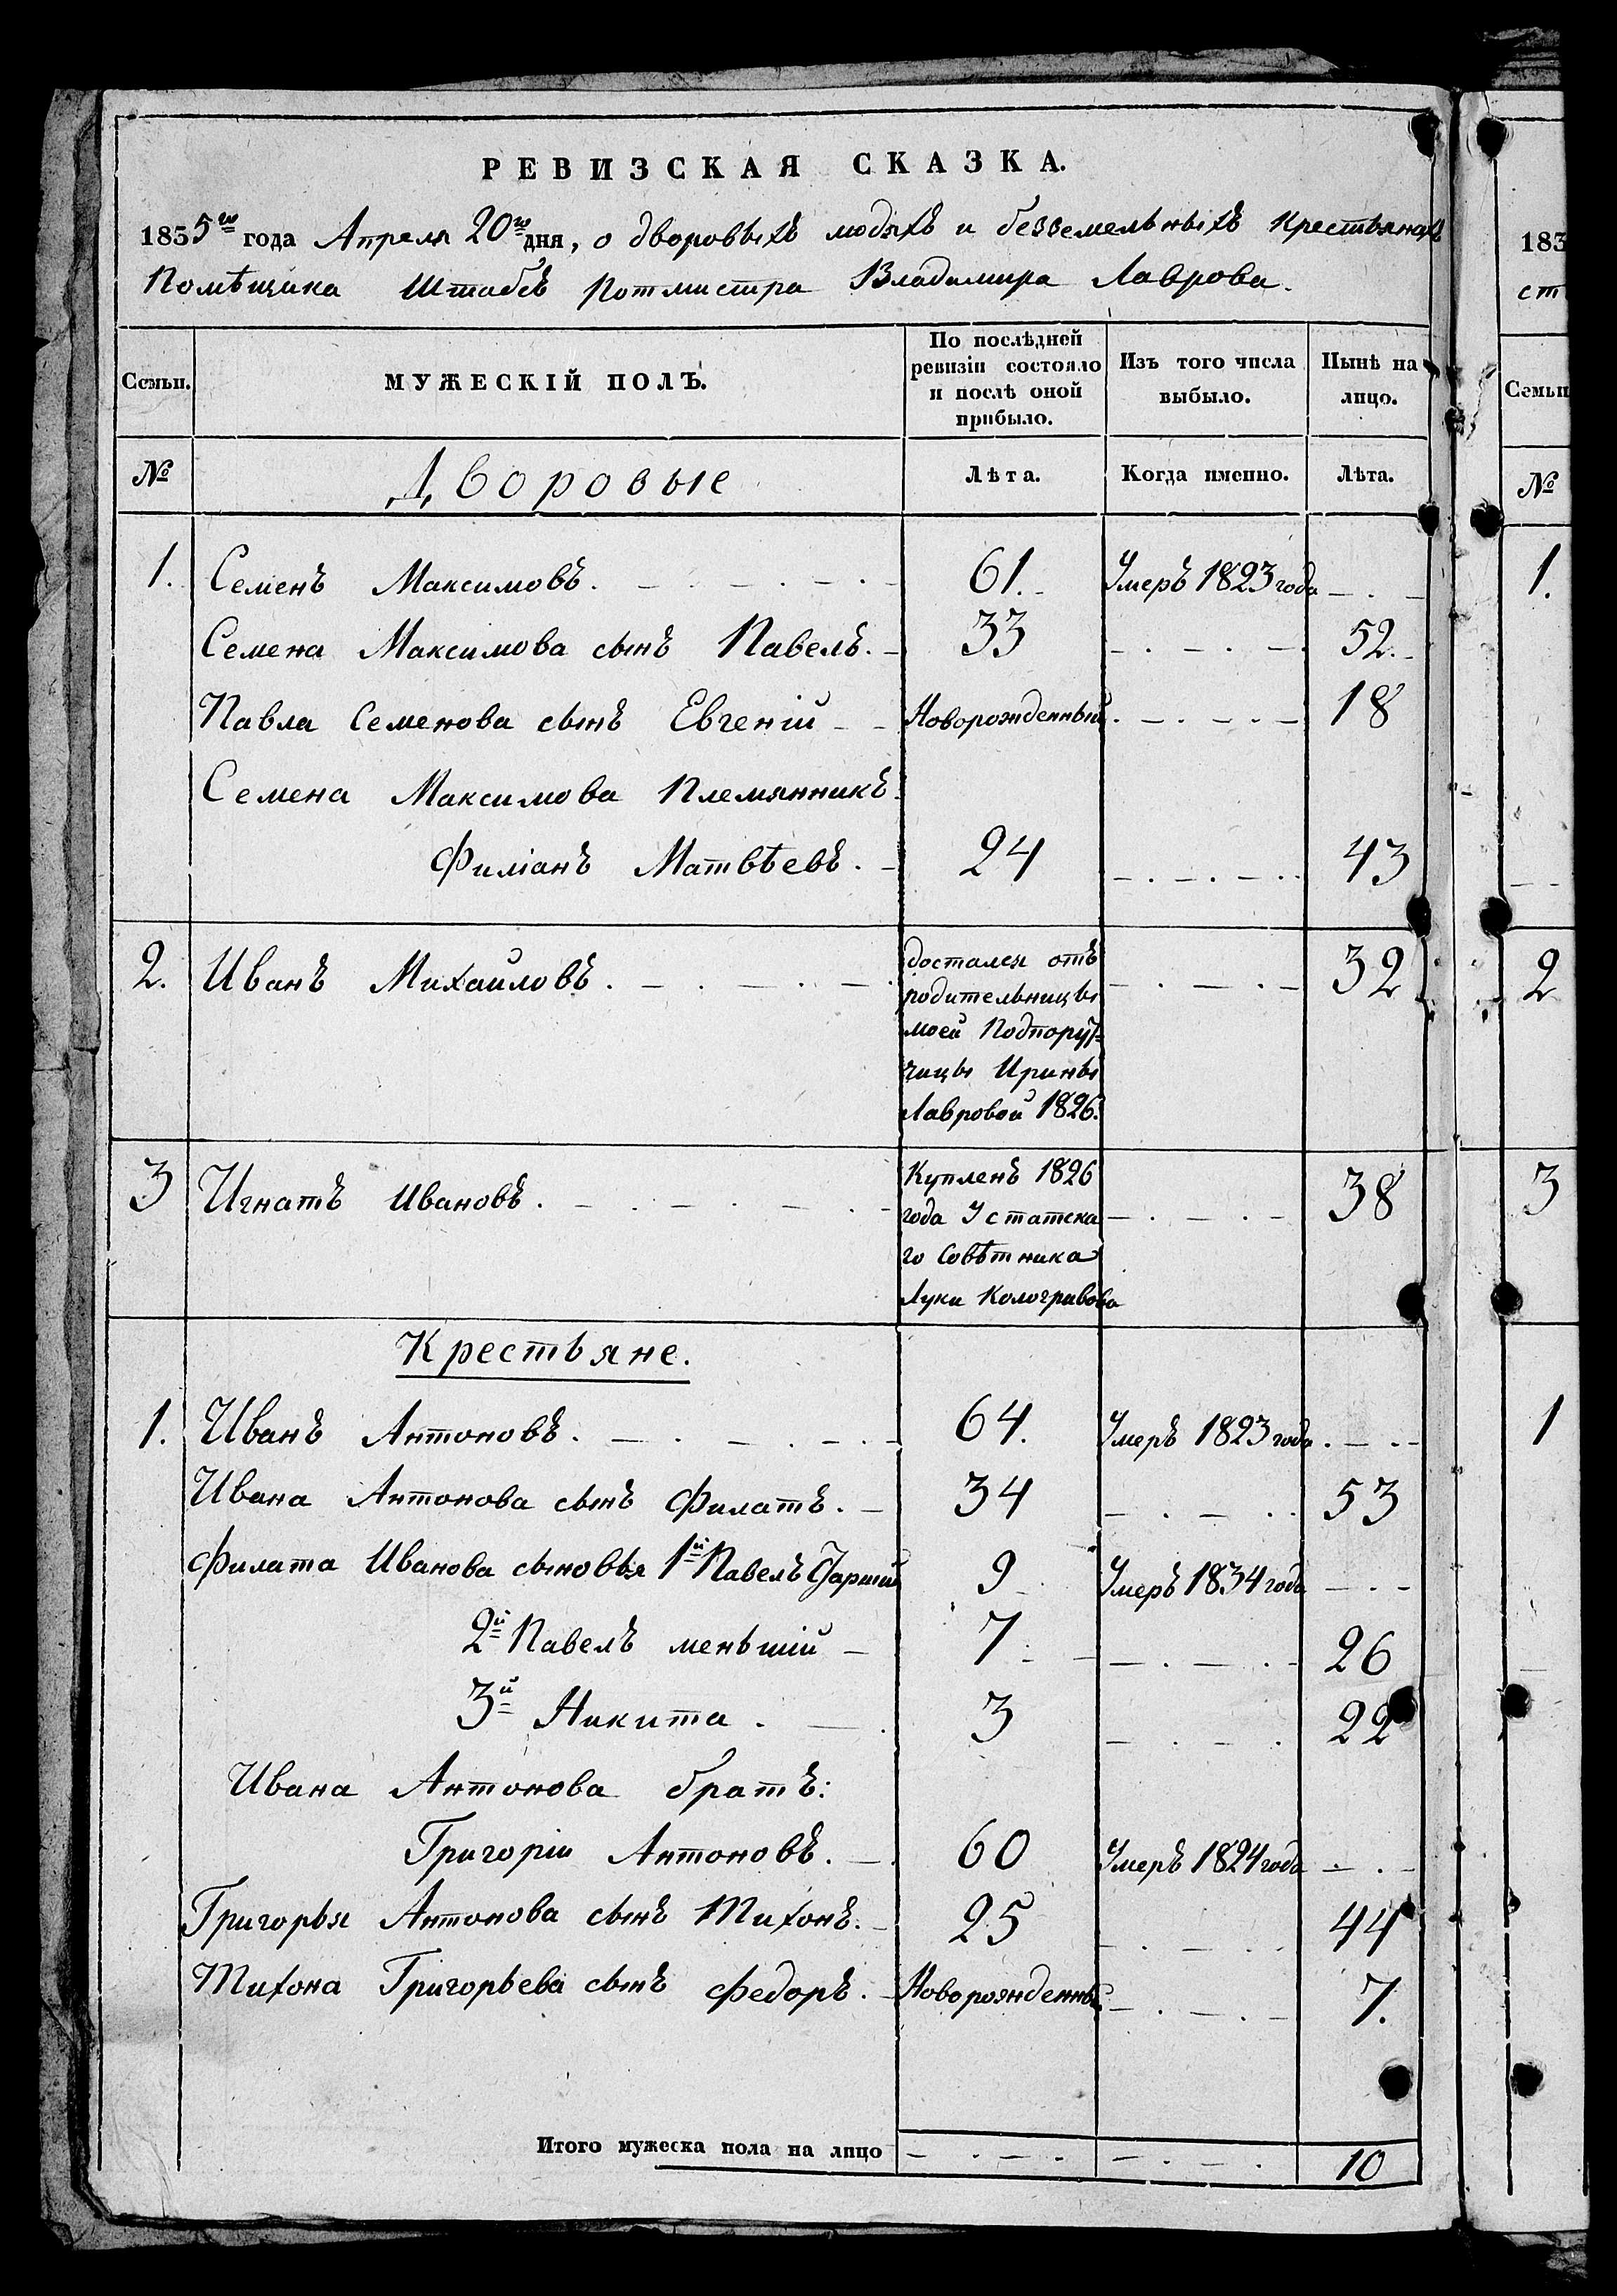 РЕВИЗСКАЯ СКАЗКА.
1835го года Апреля 20го дня, о дворовыхъ людяхъ и безземельныхъ крестьянахъ
Помѣщика Штабсъ Ротмистра Владимира Лаврова.
Семьи. МУЖЕСКІЙ ПОЛЪ. По послѣдней ревизіи состояло и послѣ оной прибыло. Изъ того числа выбыло. Нынѣ на лицо.
№ Дворовые Лѣта. Когда именно. Лѣта.
1. Семенъ Максимовъ. 61. Умеръ 1823 года
Семена Максимова сынъ Павелъ. 33 52.
Павла Семенова сынъ Евгеній Новорожденный. 18
Семена Максимова Племянникъ
Филіанъ Матвѣевъ. 24 43
2. Иванъ Михайловъ. достался отъ 32
родительницы
моей Подпору-
чицы Ирины
Лавровой 1826.
3 Игнатъ Ивановъ. Купленъ 1826 38
года У статска
го Совѣтника
Луки Кологривова
Крестьяне.
1. Иванъ Антоновъ. 64. Умеръ 1823 года
Ивана Антонова сынъ Филатъ. 34 53
Филата Иванова сыновья 1й Павелъ 9 Умеръ 1834 года
2й Павелъ меньшій 7 26
3й Никита. 3 22
Ивана Антонова братъ:
Григорій Антоновъ. 60 Умеръ 1824 года
Григорья Антонова сынъ Тихонъ. 25 44
Тихона Григорьева сынъ Федоръ. Новорожденный 7.
Итого мужеска пола на лицо 10
183
ст
Семьи
№
1.
2
3
1